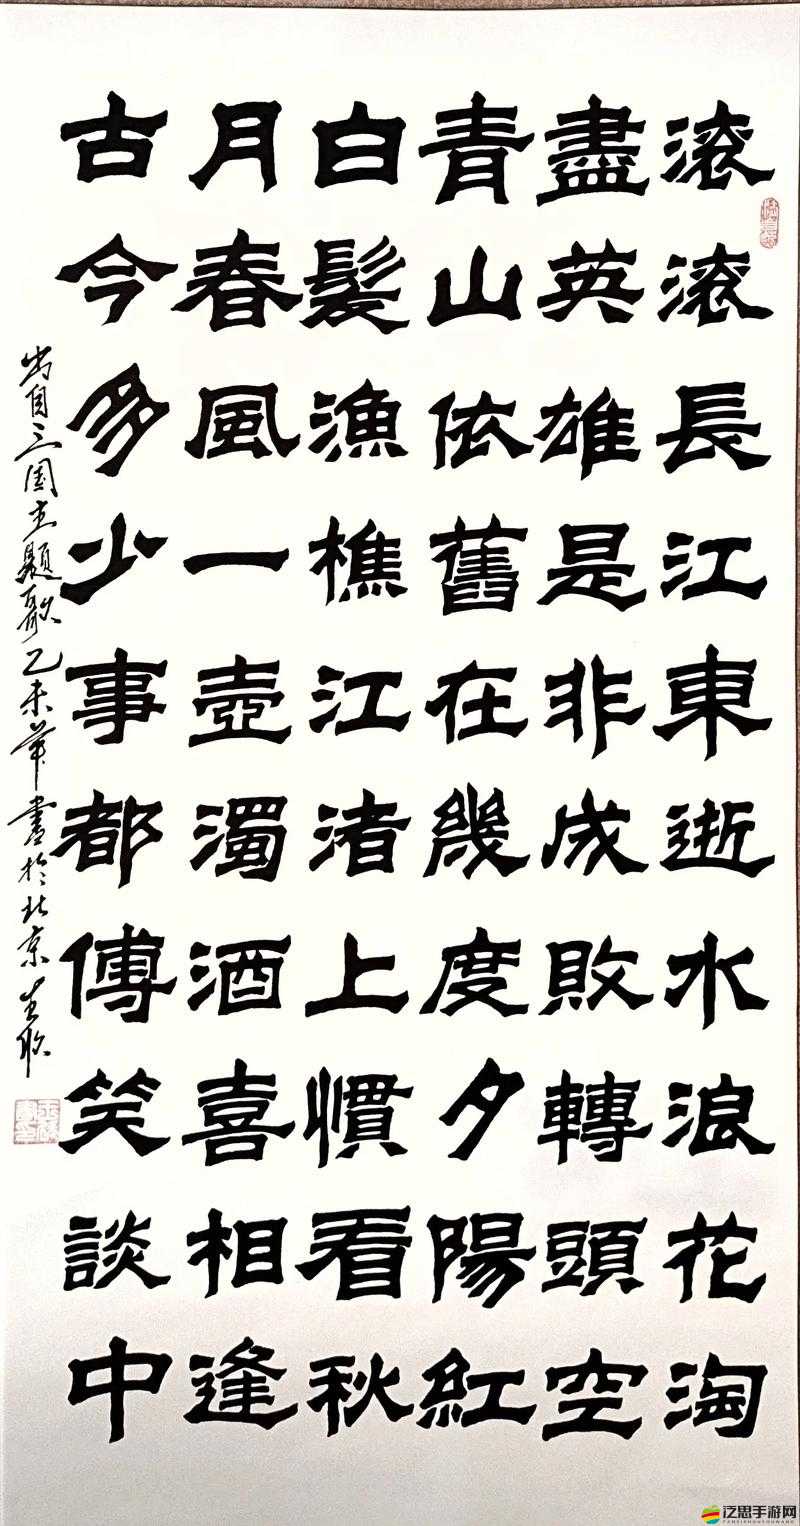 滚滚長江東逝水浪花淘
盡英雄是非成敗轉頭空
青山依舊在幾度夕陽紅
白髮漁樵江渚上慣看秋
月春風一壺濁酒喜相逢
古今多少事都傳笑談中
出自三國主題歌乙未年書於北京
泛思手游网
FANSISHOUYOUWANG